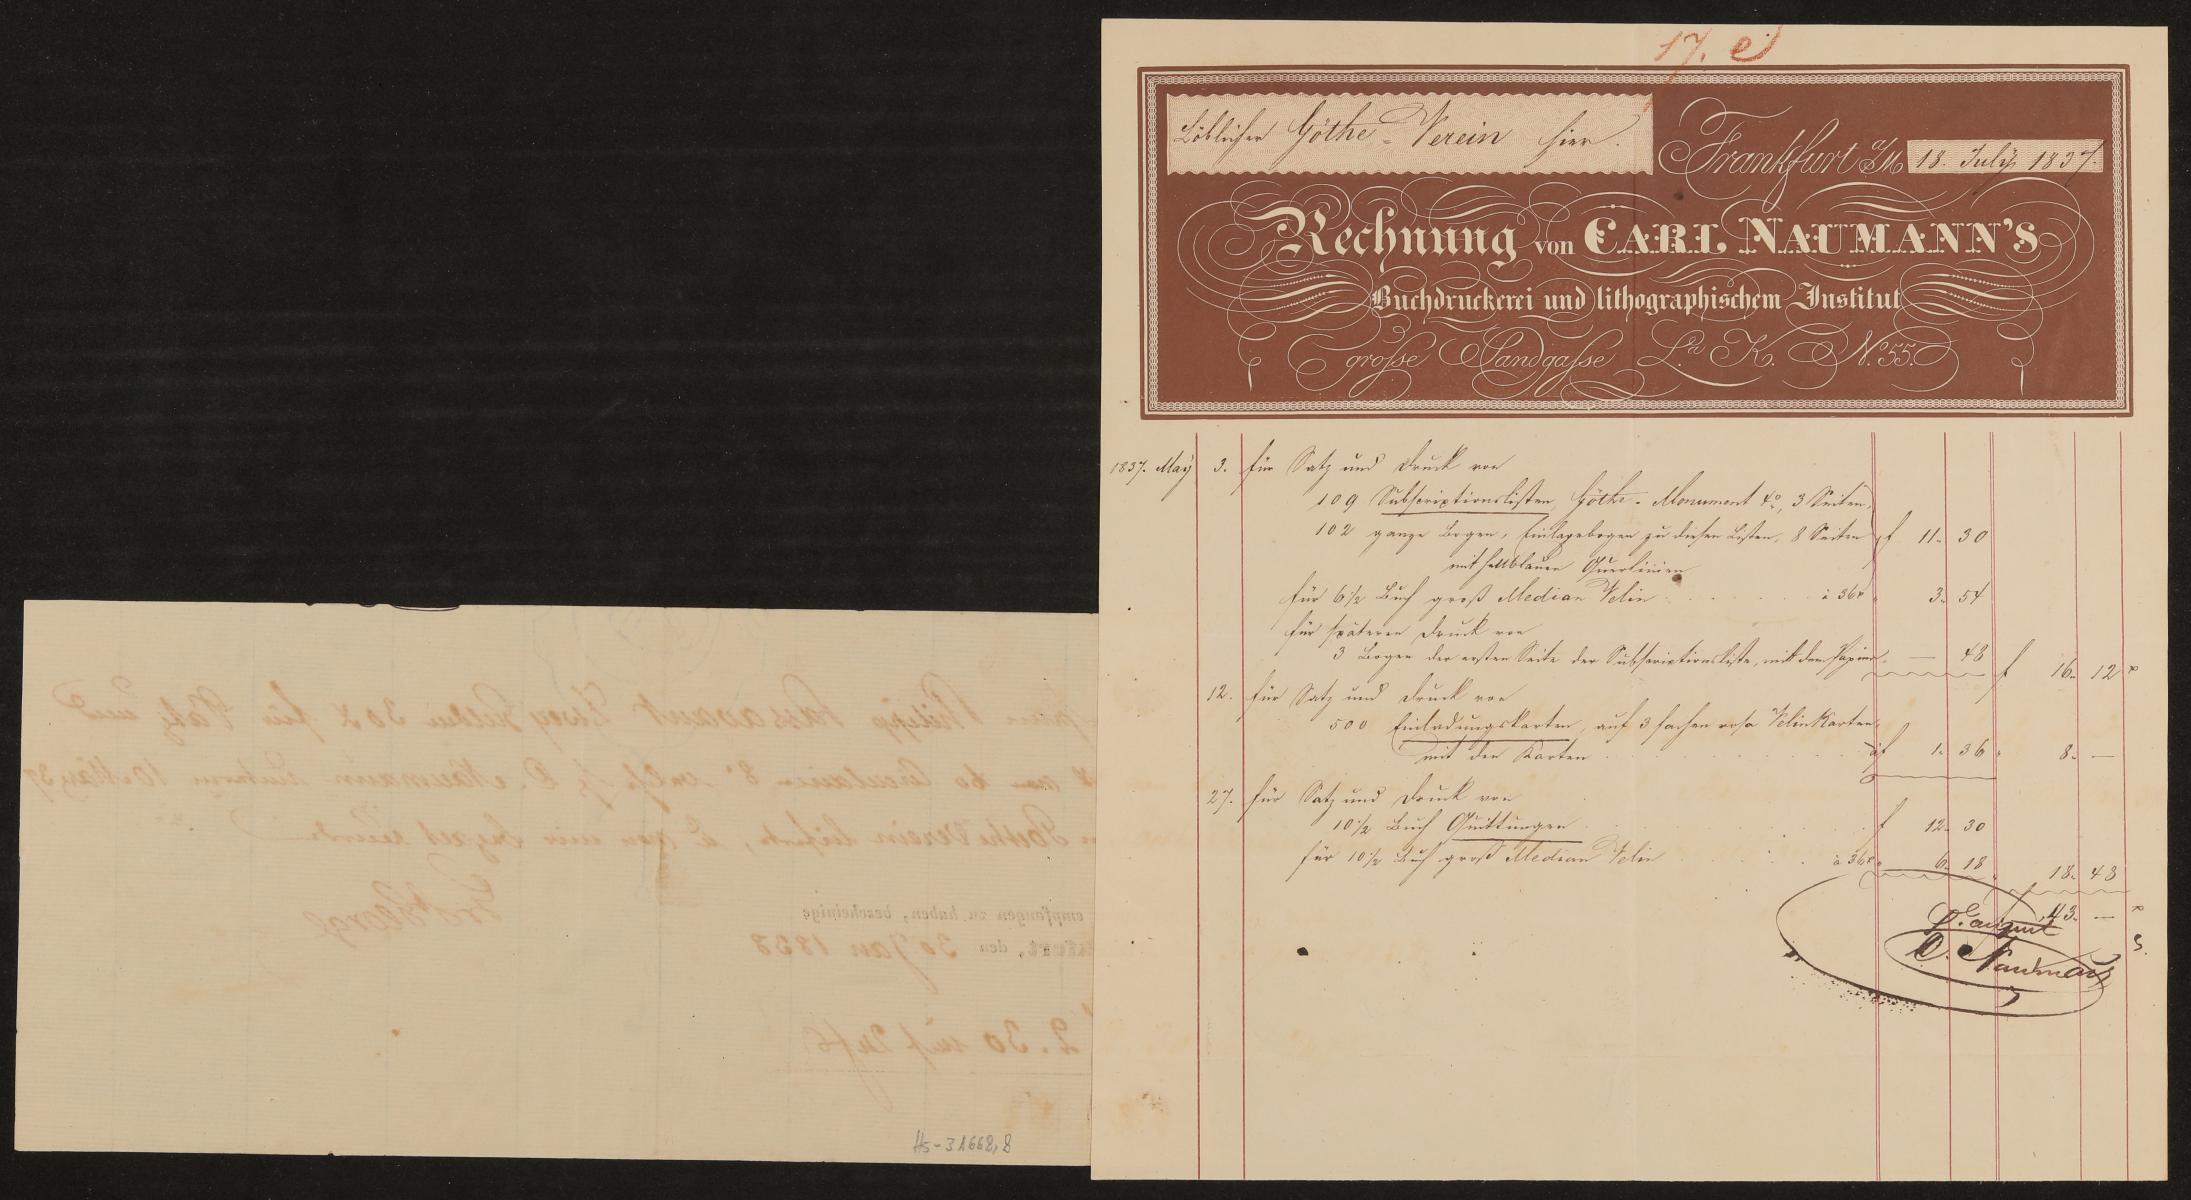 17. e
Löblicher Göthe-Verein hier.
Frankfurt a/M 18. July 1837.
Rechnung von CARL NAUMANN'S
Buchdruckerei und lithographischem Institut
grosse Sandgasse La. K. No. 55.
1837. May 3. für Satz und Druck von
109 Subscriptionslisten, Göthe-Monument 4o, 3 Seiten,
102 ganze Bogen, Einlagebogen zu diesen Listen, 8 Seiten f 11. 30
mit hellblauen Querlinien
für 6 1/2 Buch groß Median Velin à 36x 3. 54
für späteren Druck von
3 Bogen der ersten Seite der Subscriptionsliste, mit dem Papier — 48 f 16. 12 x
12. für Satz und Druck von
500 Einladungskarten, auf 3fachen rosa Velin Karten,
mit den Karten à f 1. 36 8. —
27. für Satz und Druck von
10 1/2 Buch Quittungen f 12. 30
für 10 1/2 Buch groß Median Velin à 36x 6. 18 18. 48
43. — x
C. Naumann
Philipp Passavant Zwey Gulden 30 x für Satz und
von 60 Circulairen 8o
Naumann unterm 10 May 37
Göthe Verein
empfangen zu haben, bescheinige
, den 30 Jan 1838
2. 30
Hs-31668,8